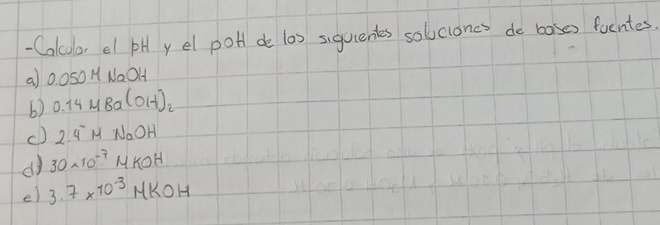 -Calcular el pH y el pOH de las siguientes soluciones de bases fuertes.
a) 0.050 M NaOH
b) 0.14 M Ba(OH)₂
c) 2.4 M NaOH
d) 30x10⁻⁷ M KOH
e) 3.7 x10⁻³ M KOH